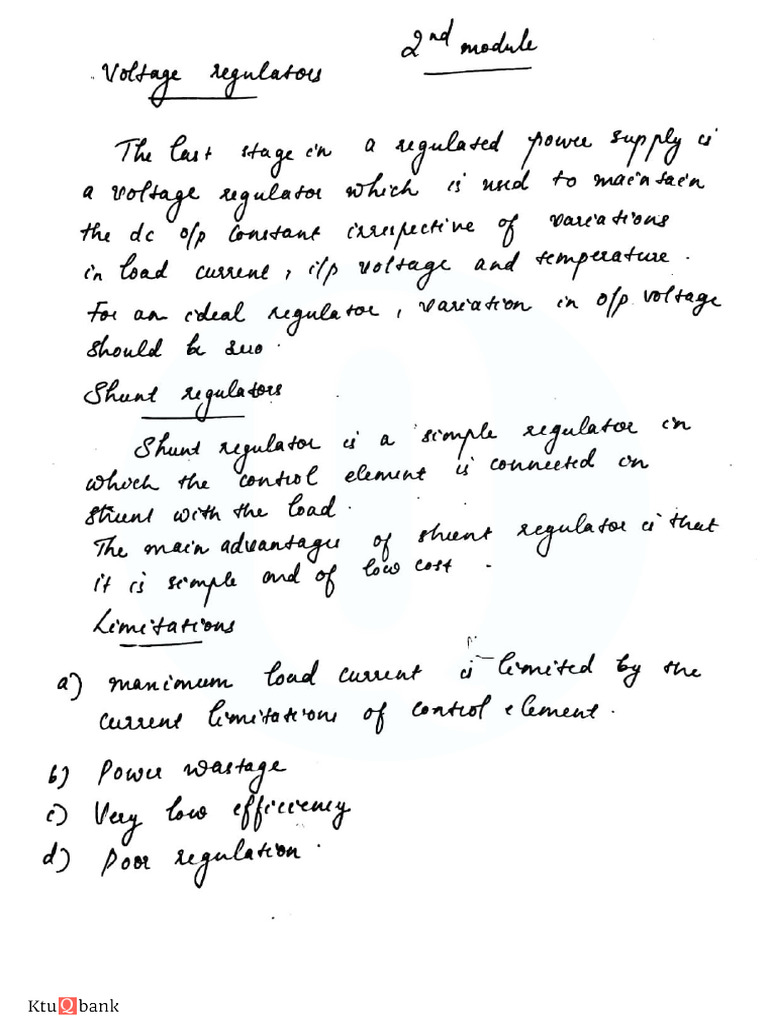 2nd module
Voltage regulators
The last stage in a regulated power supply is
a voltage regulator which is used to maintain
the dc o/p constant irrespective of variations
in load current, i/p voltage and temperature.
For an ideal regulator, variation in o/p voltage
should be zero.
Shunt regulators
Shunt regulator is a simple regulator in
which the control element is connected in
shunt with the load.
The main advantages of shunt regulator is that
it is simple and of low cost.
Limitations
a) maximum load current is limited by the
current limitations of control element.
b) Power wastage
c) Very low efficiency
d) Poor regulation.
KtuQbank